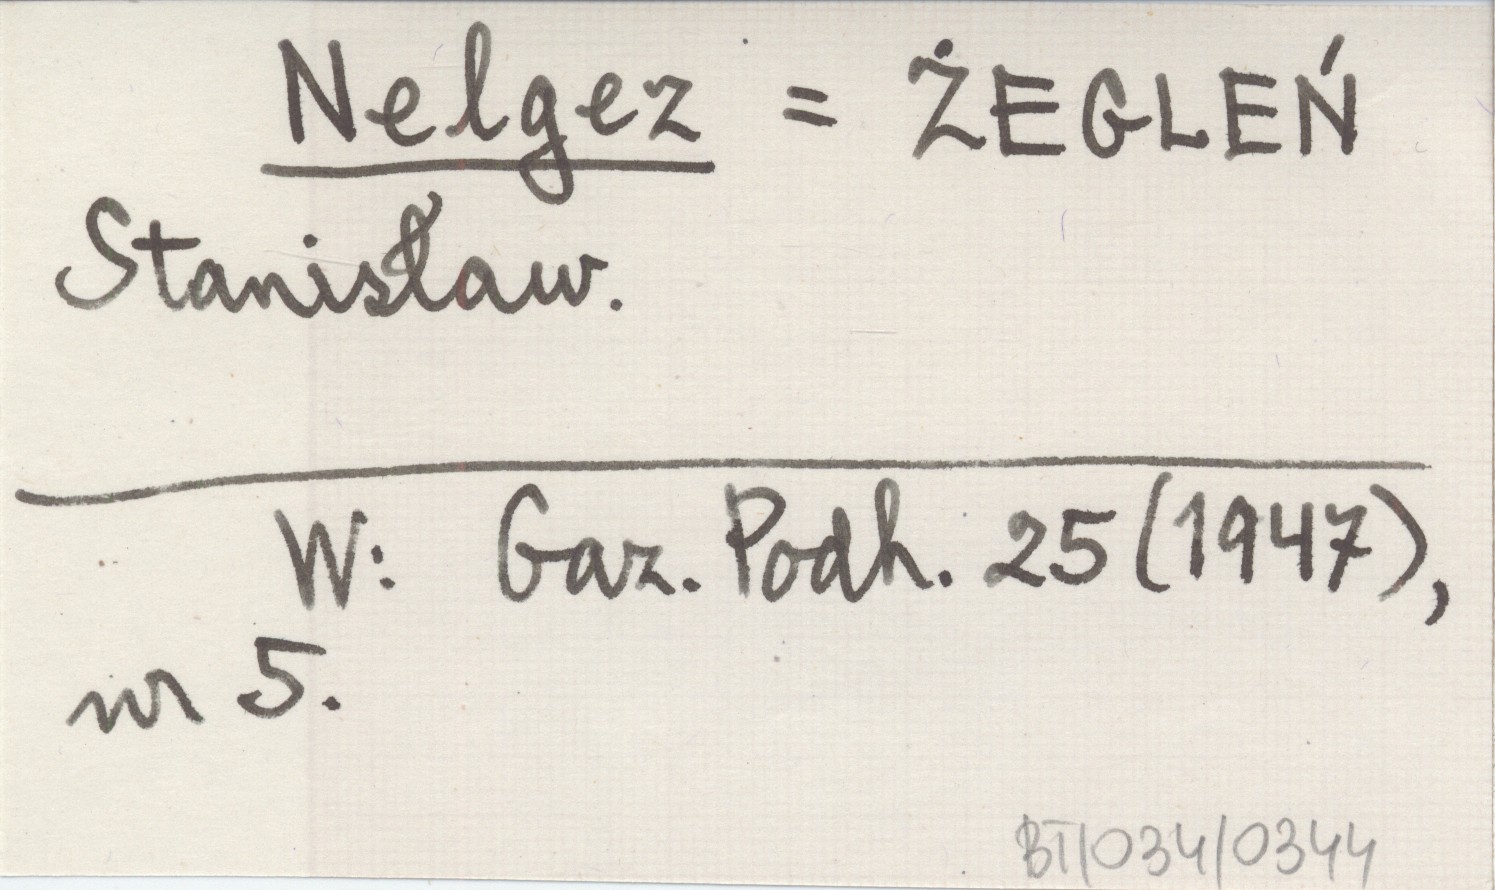 Nelgez = ŻEGLEŃ
Stanisław.
W: Gaz. Podh. 25 (1947),
nr 5.
BT/034/0344